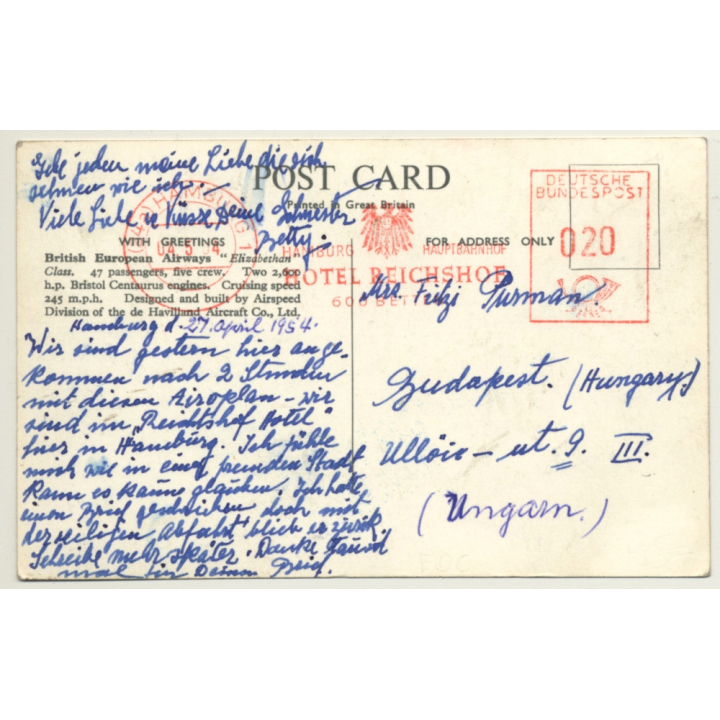 Gebe jeden meine Liebe die sich
sehnen wie ich.
Viele Liebe u Küsse Deine Schwester
Betty.
POST CARD
Printed in Great Britain
WITH GREETINGS
FOR ADDRESS ONLY
British European Airways "Elizabethan"
Class. 47 passengers, five crew. Two 2,600
h.p. Bristol Centaurus engines. Cruising speed
245 m.p.h. Designed and built by Airspeed
Division of the de Havilland Aircraft Co., Ltd.
HAMBURG 1
HAMBURG HAUPTBAHNHOF
HOTEL REICHSHOF
600 BETTEN
DEUTSCHE
BUNDESPOST
020
Hamburg d. 27. April 1954.
Wir sind gestern hier ange-
kommen nach 2 Stunden
mit diesen Airoplan – wir
sind im „Reichtshof Hotel"
hier in Hamburg. Ich fühle
mich wie in einer fremden Stadt
kann es kaum glauben. Ich hatte
einen Brief geschrieben doch mit
der eiligen abfahrt blieb er zurück.
Schreibe mehr später. Danke
mal für Deinen Brief.
Mrs. Fritzi Purman.
Budapest. (Hungary)
Ullöie – ut. 9. III.
(Ungarn.)